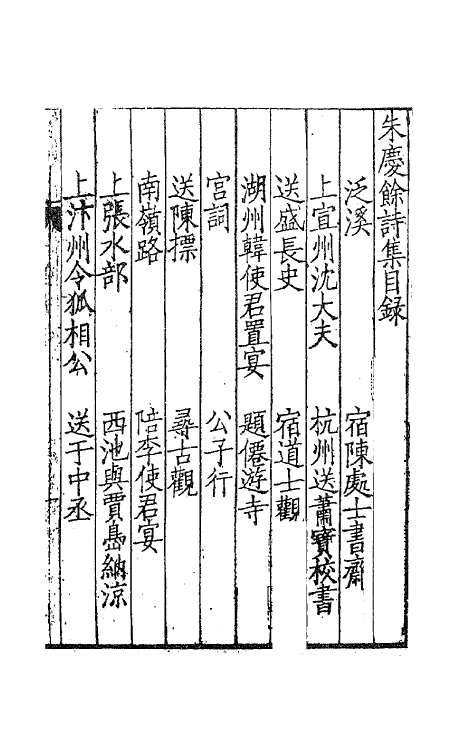 朱慶餘詩集目録
泛溪　宿陳處士書齋
上宣州沈大夫　杭州送蕭寶校書
送盛長史　宿道士觀
湖州韓使君置宴　題僊遊寺
宫詞　公子行
送陳摽　尋古觀
南嶺路　陪李使君宴
上張水部　西池與賈島納涼
上汴州令狐相公　送于中丞